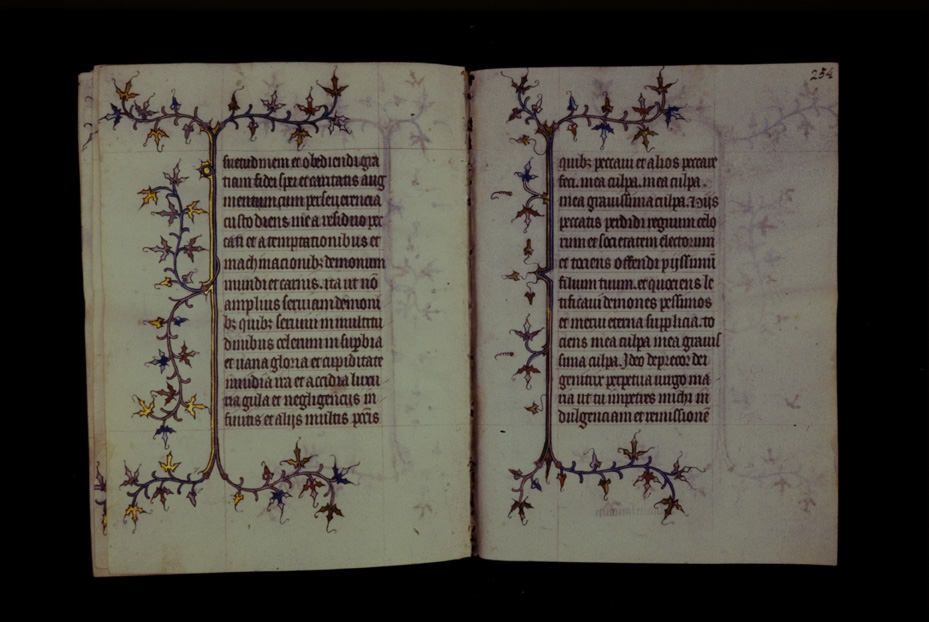 suetudinem et obediendi gra
tiam fidei spei et caritatis aug
mentum cum perseverencia
custodiens me a residivo pec
cati et a temptationibus et
machinacionibz demonum
mundi et carnis. ita ut nō
amplius serviam demoni
bz quibz servivi in multitu
dinibus celerum in supbia
et vana gloria et cupiditate
invidia ira et accidia luxu
ria gula et negligenciis in
finitis et aliis multis pctis
234
quibz peccavi et alios peccare
feci. mea culpa. mea culpa.
mea gravissima culpa. Hiis
peccatis perdidi regnum celo
rum et societatem electorum
et tociens offendi piissimū
filium tuum. et quociens le
tificavi demones pessimos
et merui eterna supplicia. to
ciens mea culpa mea gravis
sima culpa. Ideo deprecor dei
genitrix perpetua virgo ma
ria ut tu impetres michi in
dulgenciam et remissionē